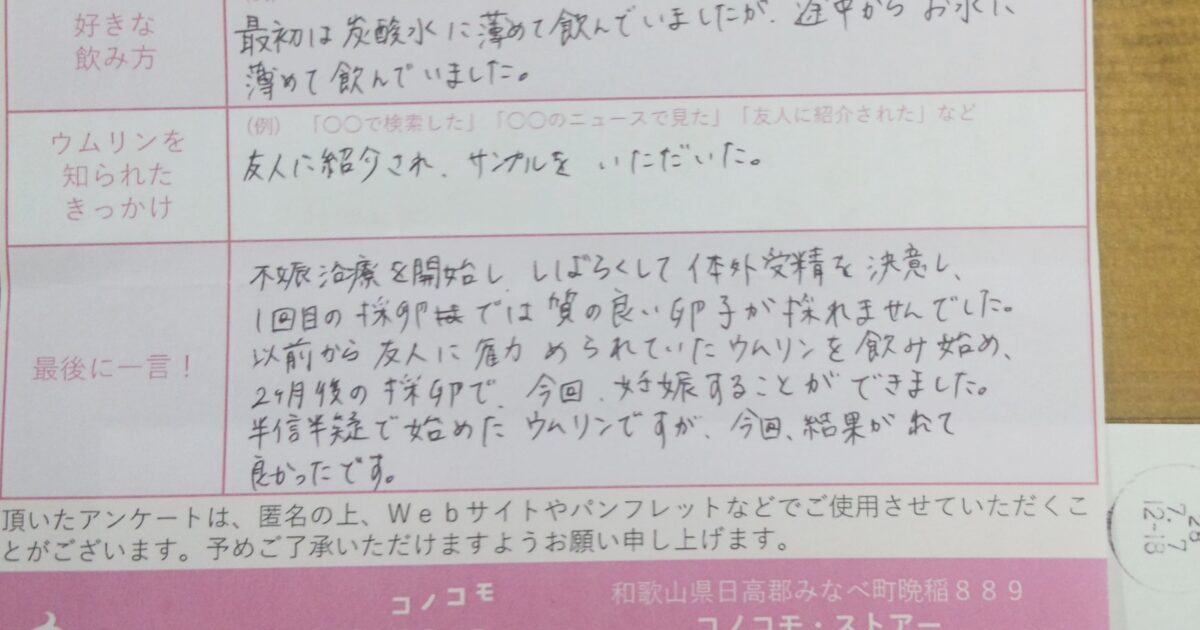 好きな
飲み方
最初は炭酸水に薄めて飲んでいましたが、途中からお水に
薄めて飲んでいました。
ウムリンを
知られた
きっかけ
(例) 「〇〇で検索した」「〇〇のニュースで見た」「友人に紹介された」など
友人に紹介され、サンプルを いただいた。
最後に一言!
不妊治療を開始し、しばらくして体外受精を決意し、
1回目の採卵では質の良い卵子が採れませんでした。
以前から友人に められていたウムリンを飲み始め、
2ヶ月後の採卵で、今回、妊娠することができました。
半信半疑で始めた ウムリンですが、今回、結果が れて
良かったです。
頂いたアンケートは、匿名の上、Webサイトやパンフレットなどでご使用させていただくこ
とがございます。予めご了承いただけますようお願い申し上げます。
コノコモ
和歌山県日高郡みなべ町晩稲889
コノコモ・ストアー
28
7.7
12-18